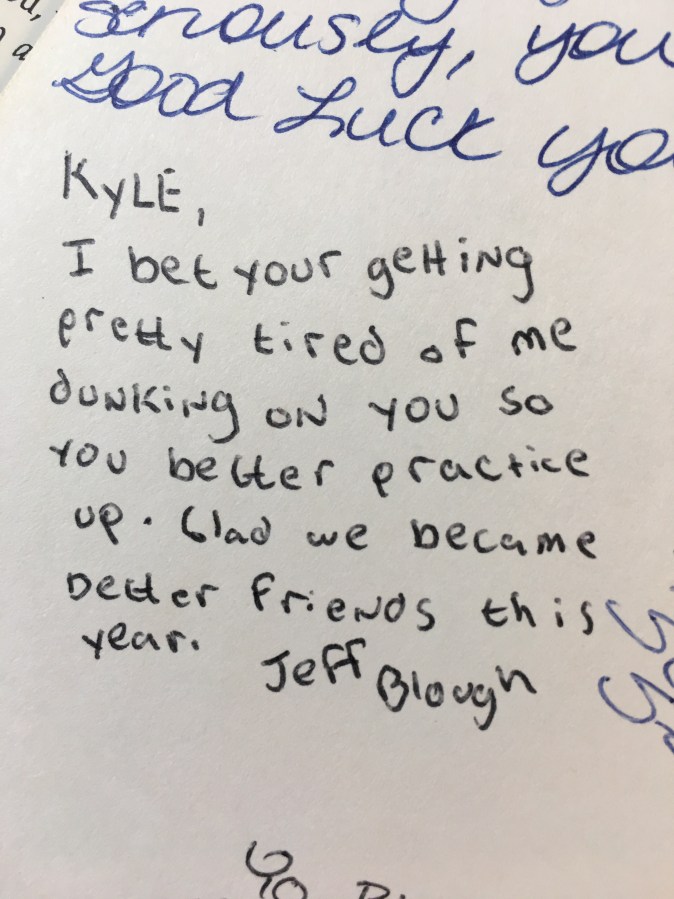 seriously, you
Good Luck yo
KYLE,
I bet your getting
pretty tired of me
dunking on you so
you better practice
up. Glad we became
better friends this
year.
Jeff Blough